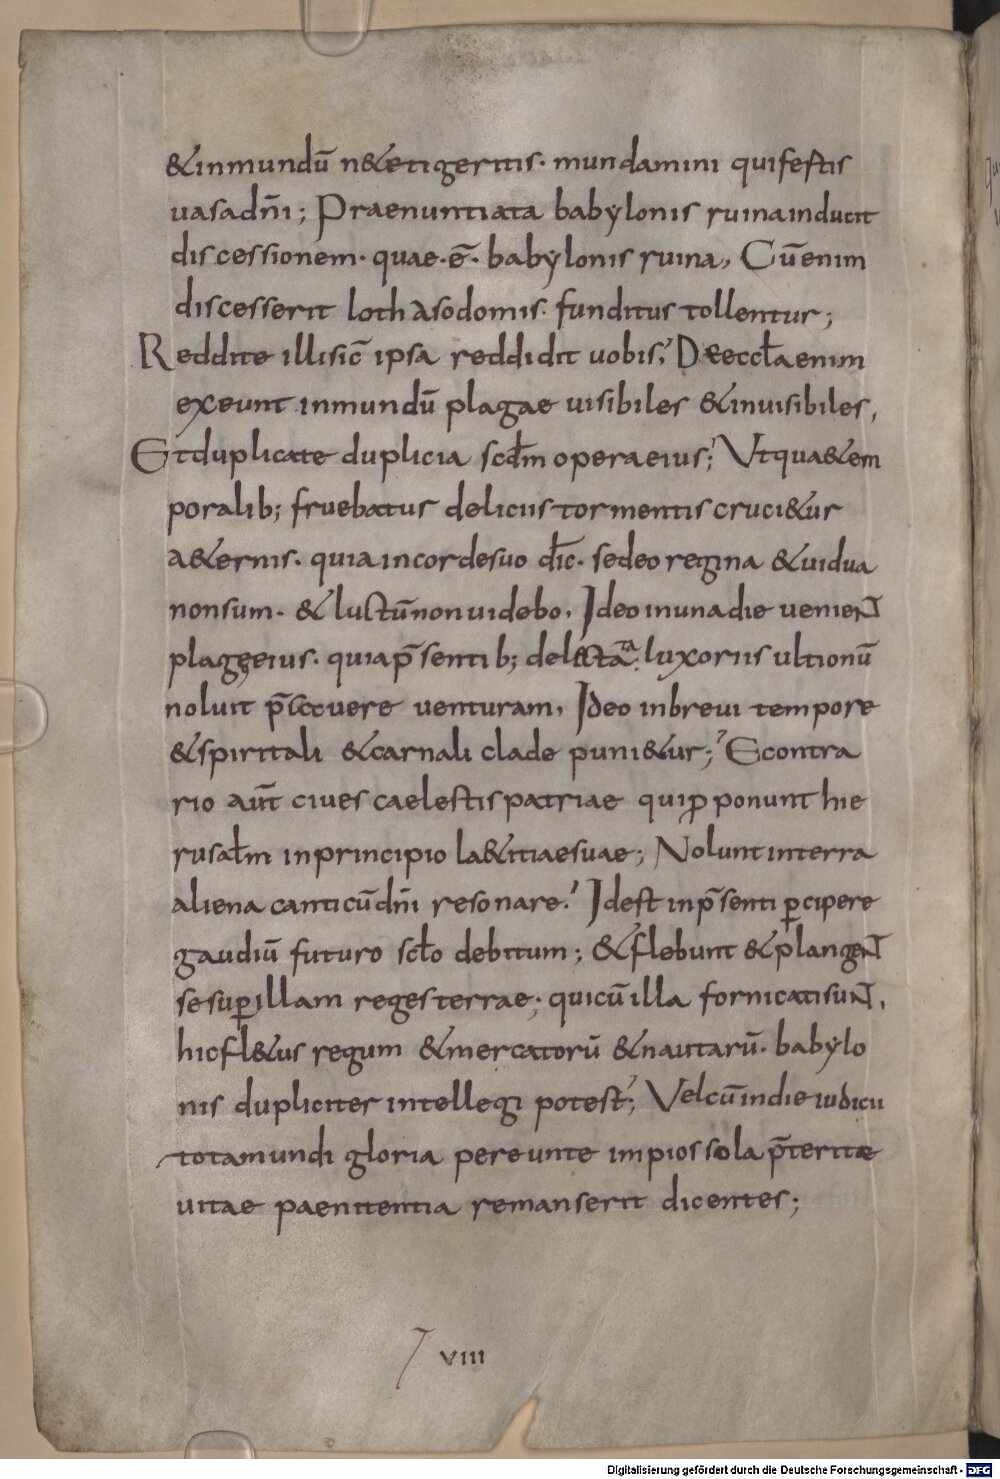 &inmundū n&etigeritis· mundamini quifestis
uasadn̄i; Praenuntiata babylonis ruina inducit
discessionem· quae·ē· babylonis ruina, Cūenim
discesserit loth asodomis· funditus tollentur;
Reddite illi sic̄ ipsa reddidit uobis; Deeccl̄aenim
exeunt inmundū plagae uisibiles &inuisibiles,
Etduplicate duplicia scd̄m operaeius; Vtqua&em
poralib; fruebatur deliciis tormentis cruci&ur
a&ernis· quia incordesuo dic̄· sedeo regina &uidua
nonsum· & luctūnonuidebo, Ideo inunadie uenient
plagęeius· quiap̄sentib; delectata luxoriis ultionū
noluit p̄cauere uenturam, Ideo inbreui tempore
&spiritali &carnali clade puni&ur; Econtra
rio aut̄ ciues caelestis patriae quip̱ponunt hie
rusal̄m inprincipio la&itiaesuae; Nolunt interra
aliena canticūdn̄i resonare? Idest inp̄senti p̱cipere
gaudiū futuro scl̄o debitum; &flebunt &plangent
sesup̱illam reges terrae; quicūilla fornicatisunt,
hicfl&us regum &mercatorū &nautarū· babylo
nis dupliciter intellegi potest; Velcūindieiudicii
totamundi gloria pereunte impios sola p̄teritae
uitae paenitentia remanserit dicentes;
VIII
Digitalisierung gefördert durch die Deutsche Forschungsgemeinschaft - DFG